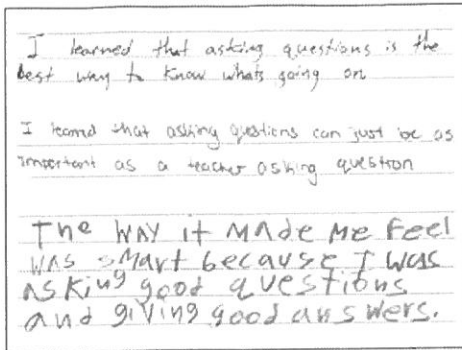 I learned that asking questions is the
best way to know whats going on
I learnd that asking questions can just be as
important as a teacher asking question
The WAY it MADE ME FEEL
WAS smart because I was
ASKING good questions
and giving good answers.